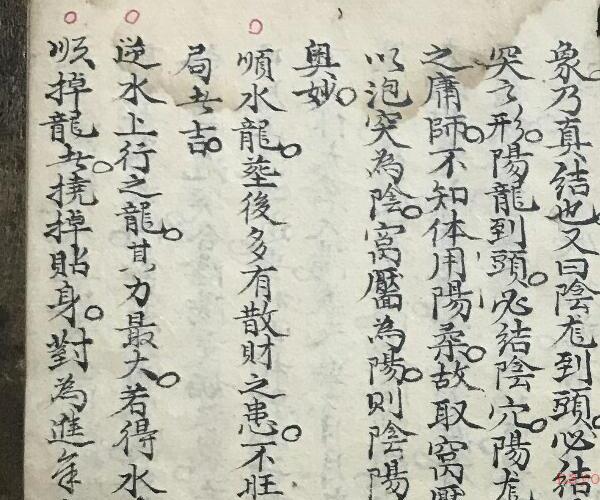 象乃真結也又曰陰尨到頭必結
突之形陽龍到頭必結陰穴陽尨
之庸師不知体用陽柔故取窩
以泡突為陰窩靨為陽則陰陽
奥妙
順水龍塟後多有散財之患不旺
局者吉
逆水上行之龍其力最大若得水
順掉龍者撓掉貼身對為進